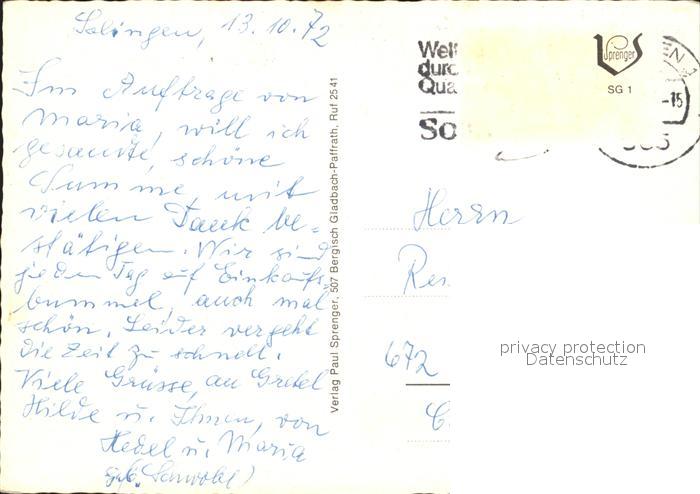 Solingen, 13.10.72
Im Auftrage von
Maria, will ich
gesandte, schöne
Summe mit
vielen Dank be=
stätigen. Wir sind
jeden Tag auf Einkaufs-
bummel, auch mal
schön. Leider vergeht
die Zeit zu schnell.
Viele Grüsse, an Gretel
Hilde u. Ihnen, von
Hedel u. Maria
Verlag Paul Sprenger, 507 Bergisch Gladbach-Paffrath, Ruf 2541
Welt
durc
Qua
So
Sprenger
SG 1
EN
-15
Herrn
672
privacy protection
Datenschutz